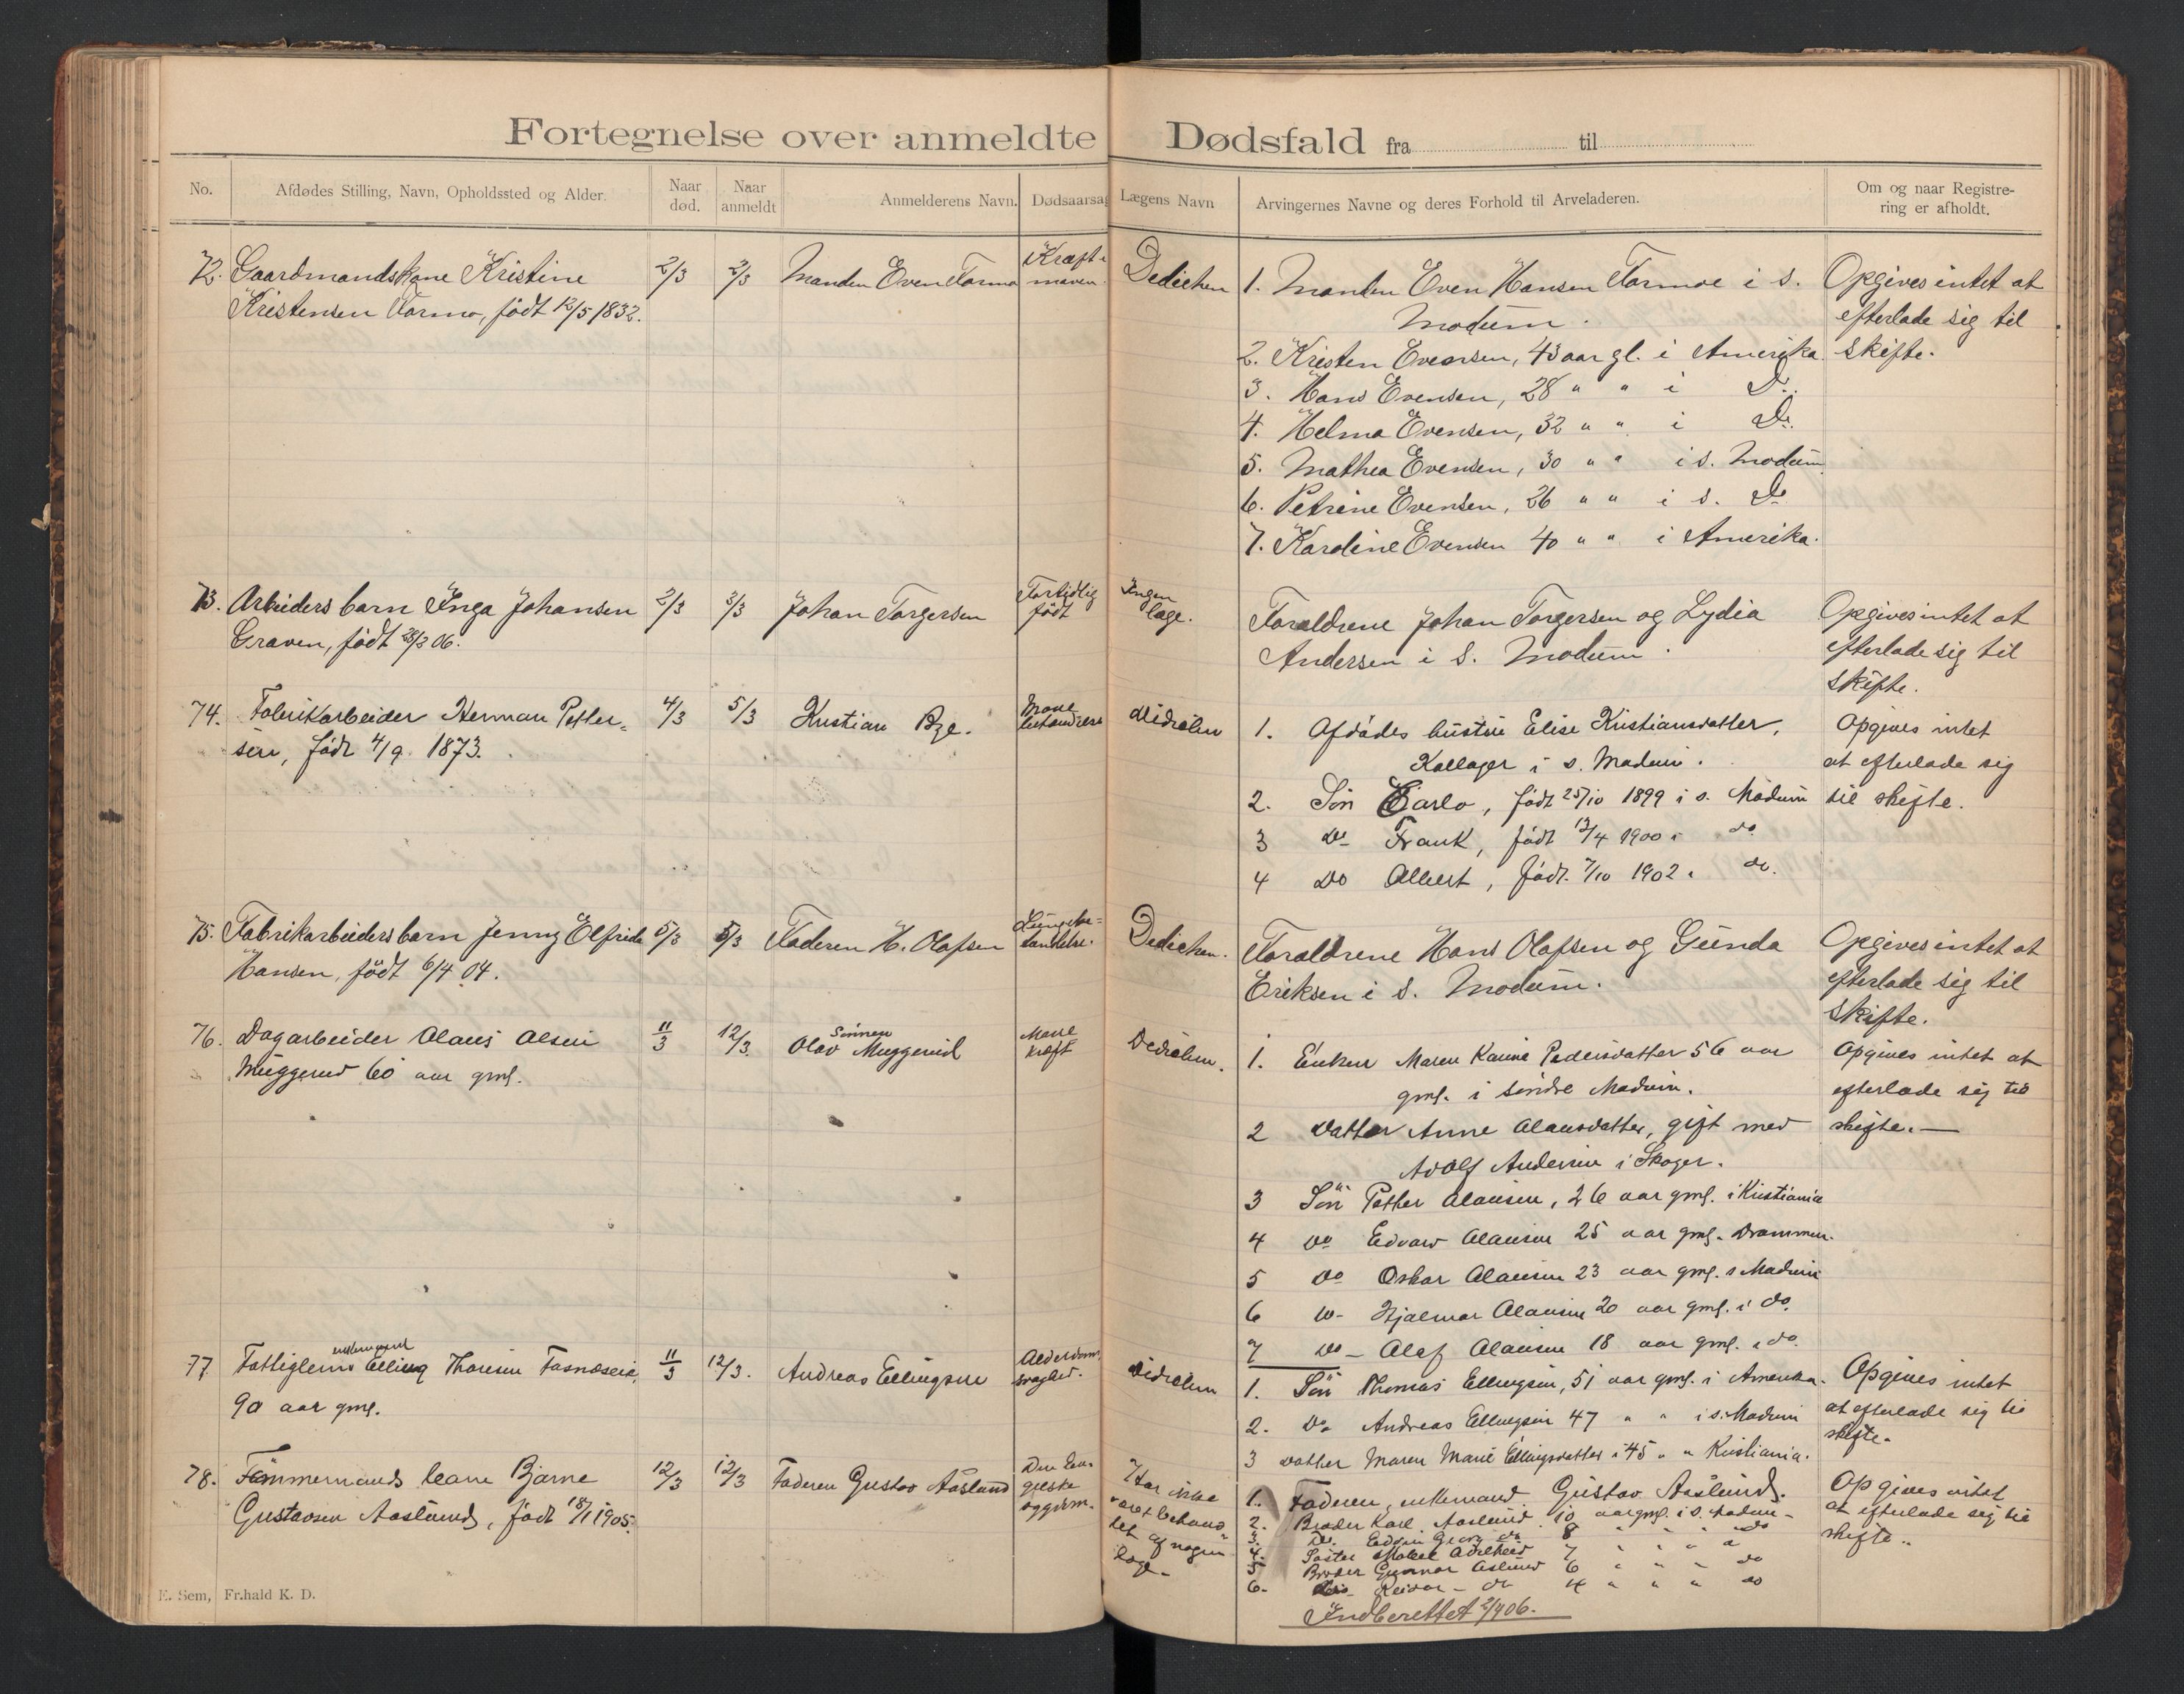 Fortegnelse over anmeldte Dødsfald fra til
No. Afdødes Stilling, Navn, Opholdssted og Alder. Naar død. Naar anmeldt Anmelderens Navn. Dødsaarsag Lægens Navn Arvingernes Navne og deres Forhold til Arveladeren. Om og naar Registrering er afholdt.
72. Gaardmandskone Kristine 2/3 2/3 Manden Even Formo Kræft i Dedichen
Kristensen Formo, født 12/5 1832. maven.
1. Manden Even Hansen Formoe i S. Opgives intet at
Modum. efterlade sig til
2. Kristen Evensen, 43 aar gl. i Amerika skifte.
3. Hans Evensen, 28 " " i Do.
4. Helma Evensen, 32 " " i Do.
5. Mathea Evensen, 30 " " i S. Modum
6. Petrine Evensen, 26 " " i S. Do
7. Karoline Evensen 40 " " i Amerika.
73. Arbeiders barn Inga Johansen 2/3 3/3 Johan Torgersen Fortidlig Ingen
Graven, født 28/2 06. født læge.
Forældrene Johan Torgersen og Lydia Opgives intet at
Andersen i S. Modum. efterlade sig til
skifte.
74. Fabrikarbeider Herman Petter- 4/3 5/3 Kristian Bye. Dedichen
sen, født 4/9 1873.
1. Afdødes hustru Elise Kristiansdatter, Opgives intet
Kallager i S. Modum. at efterlade sig
2. Søn Carlo, født 25/10 1899 i S. Modum til skifte.
3 Do Frank, født 13/4 1900 i do
4 Do Albert, født 7/10 1902 i do.
75. Fabrikarbeiders barn Jenny Elfrida 5/3 5/3 Faderen H. Olafsen Lungebe- Dedichen.
Hansen, født 6/4 04. tændelse.
Forældrene Hans Olafsen og Gunda Opgives intet at
Eriksen i S. Modum. efterlade sig til
skifte.
76. Dagarbeider Olaus Olsen 11/3 12/3. Sønnen Mave Dedichen.
Muggerud 60 aar gml. Olav Muggerud kræft
1. Enken Maren Karine Pedersdatter 56 aar Opgives intet at
gml. i Søndre Modum. efterlade sig til
2 Datter Anne Olausdatter, gift med skifte. —
Adolf Andersen i Skoger.
3 Søn Petter Olausen, 26 aar gml. i Kristiania
4 Do Edvard Olausen 25 aar gml. Drammen.
5 Do Oskar Olausen 23 aar gml. S Modum
6 Do- Hjalmar Olausen 20 aar gml. i do.
7 Do- Olaf Olausen 18 aar gml. i do
77. Fattiglem enkemand Elling Thoresen 11/3 12/3. Andreas Ellingsen Alderdoms Dedichen
90 aar gml. svaghed.
1. Søn Thomas Ellingsen, 51 aar gml. i Amerika. Opgives intet
2. Do Andreas Ellingsen 47 " " i S. Modum at efterlade sig til
3 Datter Maren Marie Ellingsdatter i 45 " " Kristiania. skifte.
78. Tømmermands barn Bjarne 12/3 12/3 Faderen Gustav Aaslund Den en- Har ikke
Gustavsen Aaslund, født 18/1 1905. gelske sygdom. været behand-
let af nogen
læge.
1. Faderen, enkemand Gustav Aaslund. Opgives intet
2. Broder Karl Aaslund 10 aar gml. i S. Modum - at efterlade sig til
3. Do. Edvin Georg do 8 " " " do skifte.
4. Søster Mabel Adelheid 7 " " "
5 Broder Gunnar Aslund 6 " " " do
6. Do Reidar - do 4 " " " do
Indberettet 2/4 06.
E. Sem, Fr.hald K. D.